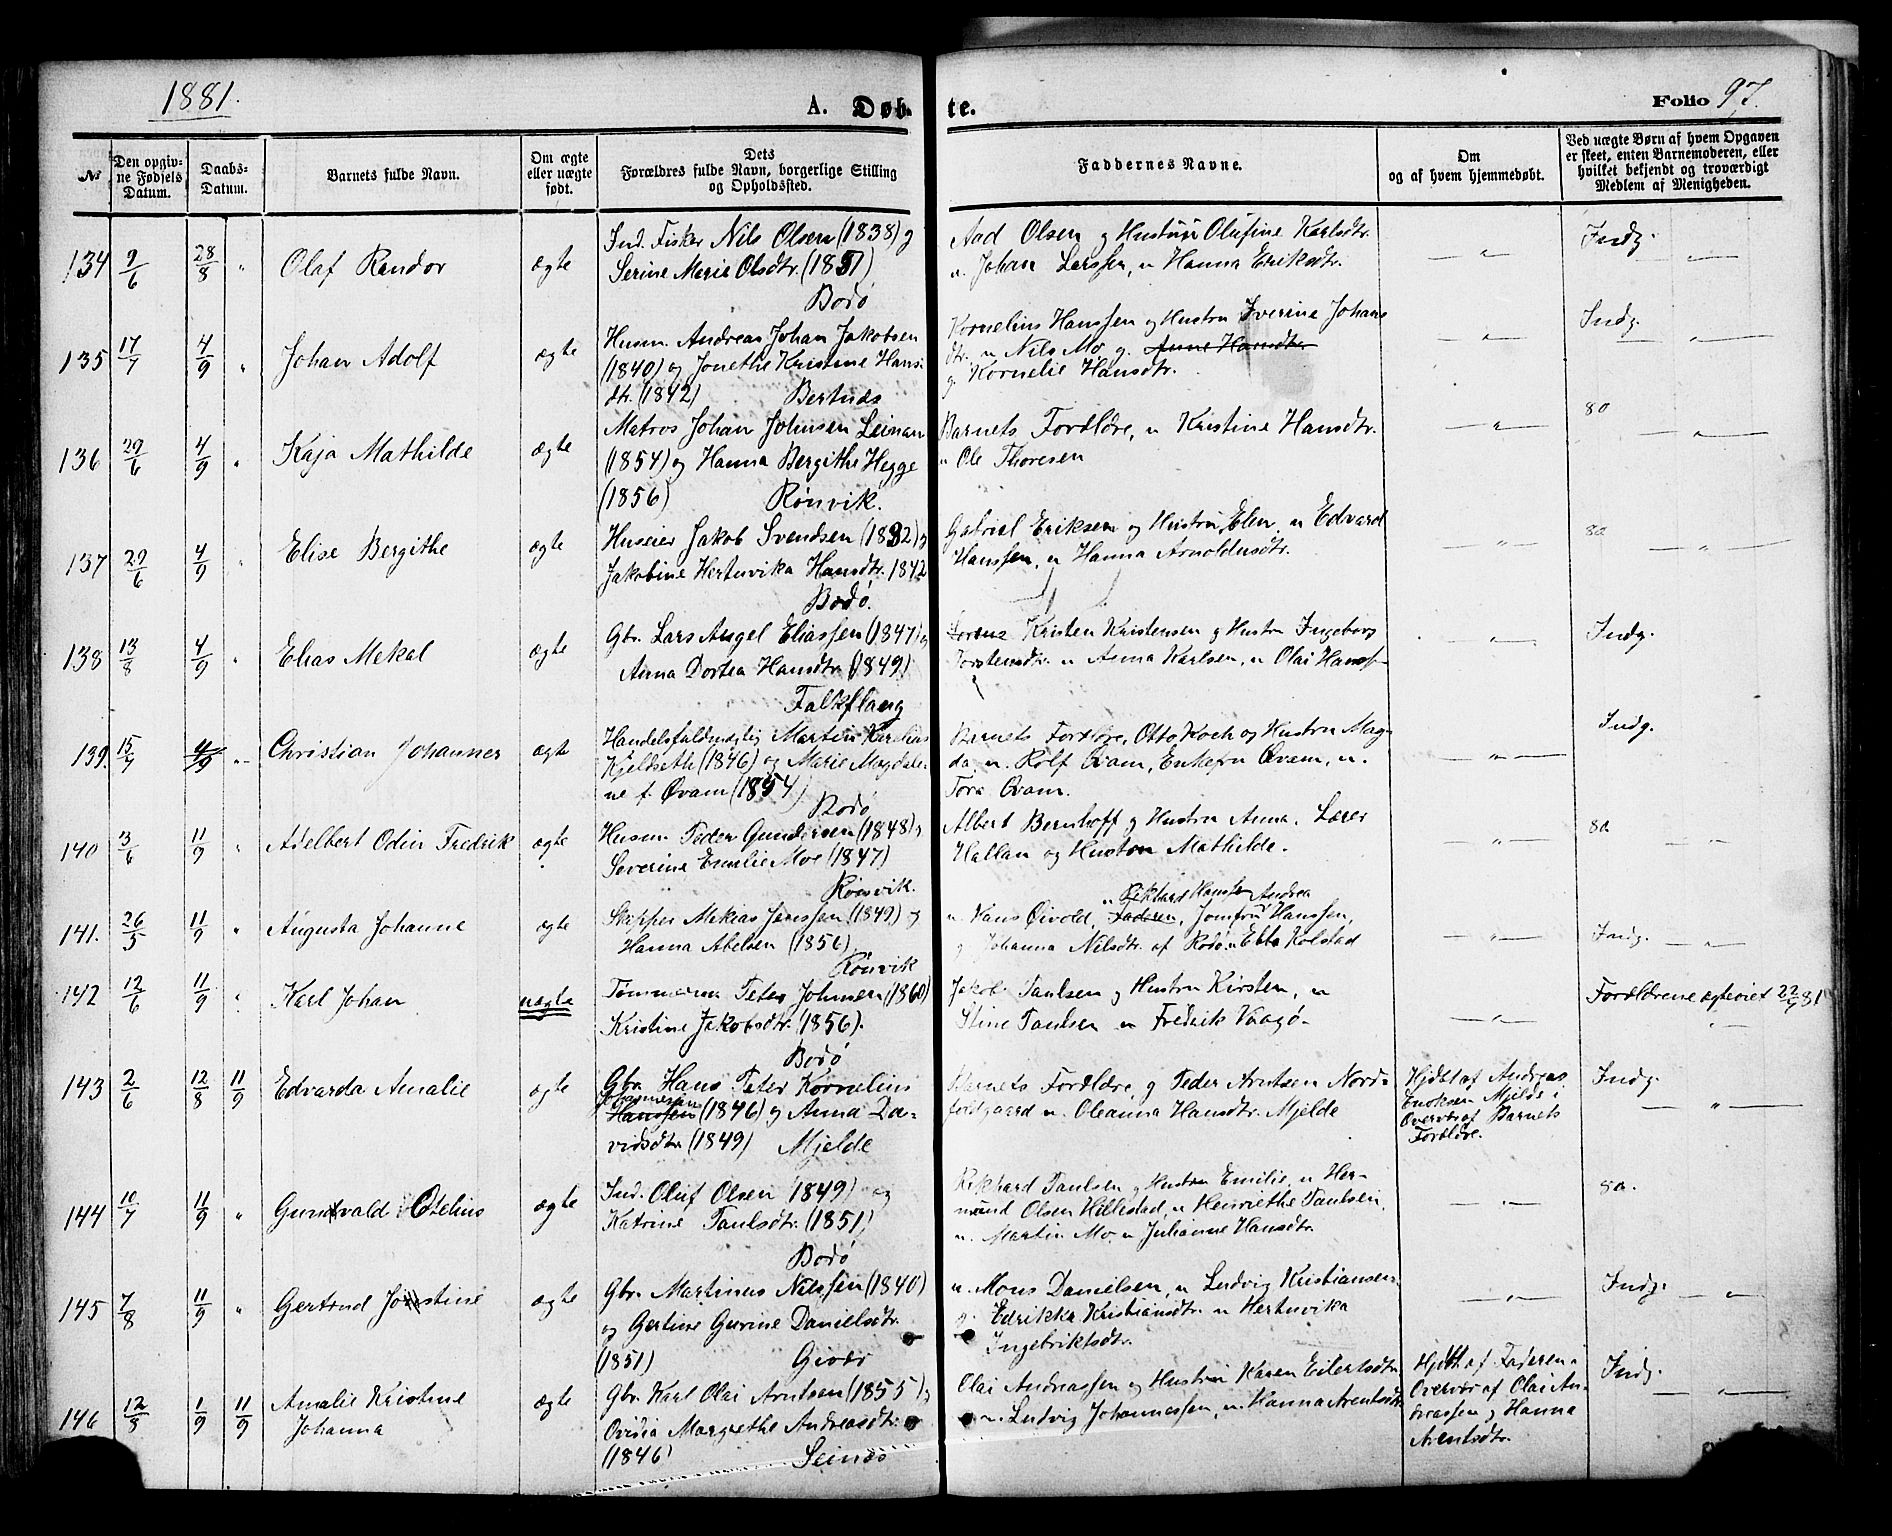 1881.
A. Døb-
te.
Folio 97.
No
Den opgiv-
ne Fødsels
Datum.
Daabs-
Datum.
Barnets fulde Navn.
Om ægte
eller uægte
født.
Dets
Forældres fulde Navn, borgerlige Stilling
og Opholdssted.
Faddernes Navne.
Om
og af hvem hjemmedøbt.
Ved uægte Børn af hvem Opgaven
er skeet, enten Barnemoderen, eller
hvilket bekjendt og troværdigt
Medlem af Menigheden.
134 9/6 28/8 " Olaf Randor ægte
Ind. Fisker Nils Olsen (1838) og
Serine Marie Olsdtr. (1851)
Bodö
Aad Olsen og Hustru Olufine Karlsdtr.
u. Johan Larssen, u Hanna Eriksdtr.
— " —
Indg.
— " —
135 17/7 4/9 " Johan Adolf ægte
Husm. Andreas Johan Jakobsen
(1840) og Jonethe Kristine Hans-
dtr. (1842) Bertnæs
Kornelius Hanssen og Hustru Iverine Johans
dtr. u Nils Mo, g. Anne Hansdtr
g. Kornelie Hansdtr.
— " —
Indg.
— " —
136 29/6 4/9 " Kaja Mathilde ægte
Matros Johan Johnsen Leinan
(1854) og Hanna Bergithe Hegge
(1856) Rönvik.
Barnets Forældre, u Kristine Hansdtr.
u Ole Thoresen
— " —
80
— " —
137 29/6 4/9 " Elise Bergithe ægte
Huseier Jakob Svendsen (1832) og
Jakobine Hertnvika Hansdtr. 1842
Bodö.
Gabriel Eriksen og Hustru Elen, u Edvard
Hanssen, u Hanna Arnoldusdtr.
— " —
80
— " —
138 13/8 4/9 " Elias Mekal ægte
Gbr. Lars Angel Eliassen (1847) og
Anna Dortea Hansdtr. (1849)
Falkflaug
Kristen Kristensen g Hustru Ingeborg
Torstensdtr. u Anna Karlsen, u Olai Hanss-
— " —
Indg.
— " —
139. 15/7 4/9 " Christian Johannes ægte
Handelsfuldmægtig Martin
Kjeldseth (1846) og Marie Magdale-
ne f. Qvam (1854)
Bodö
Barnets Forældre, Otto Koch og Hustru Mag-
da, u. Rolf Qvam, Enkefru Qvam, u.
Tora Qvam.
— " —
Indg.
140 3/6 11/9 " Adelbert Odin Fredrik ægte
Husm. Peder Gundersen (1848) og
Severine Emilie Moe (1847)
Rönvik.
Albert Bernhoff og Hustru Anna. Lærer
Hallan og Hustru Mathilde.
— " —
80
— " —
141. 26/5 11/9 " Augusta Johanne ægte
Skipper Mekias Jenssen (1849) og
Hanna Abelsen (1856)
Rönvik
" Rikhard Hanssen Andrea
u Hans Öivold, Faderen, Jomfru Hanssen,
g Johanna Nilsdtr. af Rödö, u Ebba Kolstad
— " —
Indg.
— " —
142 12/6 11/9 " Karl Johan uægte
Tömmerm. Peter Johnsen (1860)
Kristine Jakobsdtr. (1856).
Bodö
Jakob Paulsen og Hustru Kirsten, u
Stine Paulsen u Fredrik Vaagö-
— " —
Forældrene
— " —
143 2/6 12/8 11/9 Edvarda Amalie ægte
Gbr. Hans Peter Kornelius
Johannesen
Hanssen (1846) og Anna Da-
vidsdtr. (1849) Mjelde
Barnets Forældre, g Peder Arntsen Nord-
foldgaard u. Oleanna Hansdtr. Mjelde
Hjdbt af Andreas
Enoksen Mjelde i
Overvær af Barnets
Forældre.
Indg.
— " —
144 10/7 11/9 " Gunvald Otelius ægte
Ind. Oluf Olsen (1849) og
Katrine Paulsdtr. (1851)
Bodö
Rikhard Paulsen g Hustru Emilie, u Her-
mund Olsen Hillestad, u Henriethe Paulsen,
u. Martin Mo, u Julianne Hansdtr.
— " —
80.
145 7/8 11/9 " Gertrud Justine ægte
Gbr. Martinus Nilssen (1840)
og Gertine Gurine Danielsdtr.
(1851) Givær
u. Mons Danielsen, u. Ludvig Kristiansen
g. Edrikka Kristiansdtr. u Hertnvika
Ingebriktsdtr.
— " —
Indg.
— " —
146 12/3 1/9 11/9 Amalie Kristine
Johanna ægte
Gbr. Karl Olai Arntsen (1855) og
Ovidia Margrethe Andreasdtr.
(1846) Seinæs
Olai Andreassen og Hustru Karen Eilertsdtr
u. Ludvig Johannessen, u. Hanna Arentsdtr.
Hjdbt af Faderen i
Overvær af Olai An-
dreassen g Hanna
Arentsdtr.
Indg.
— " —